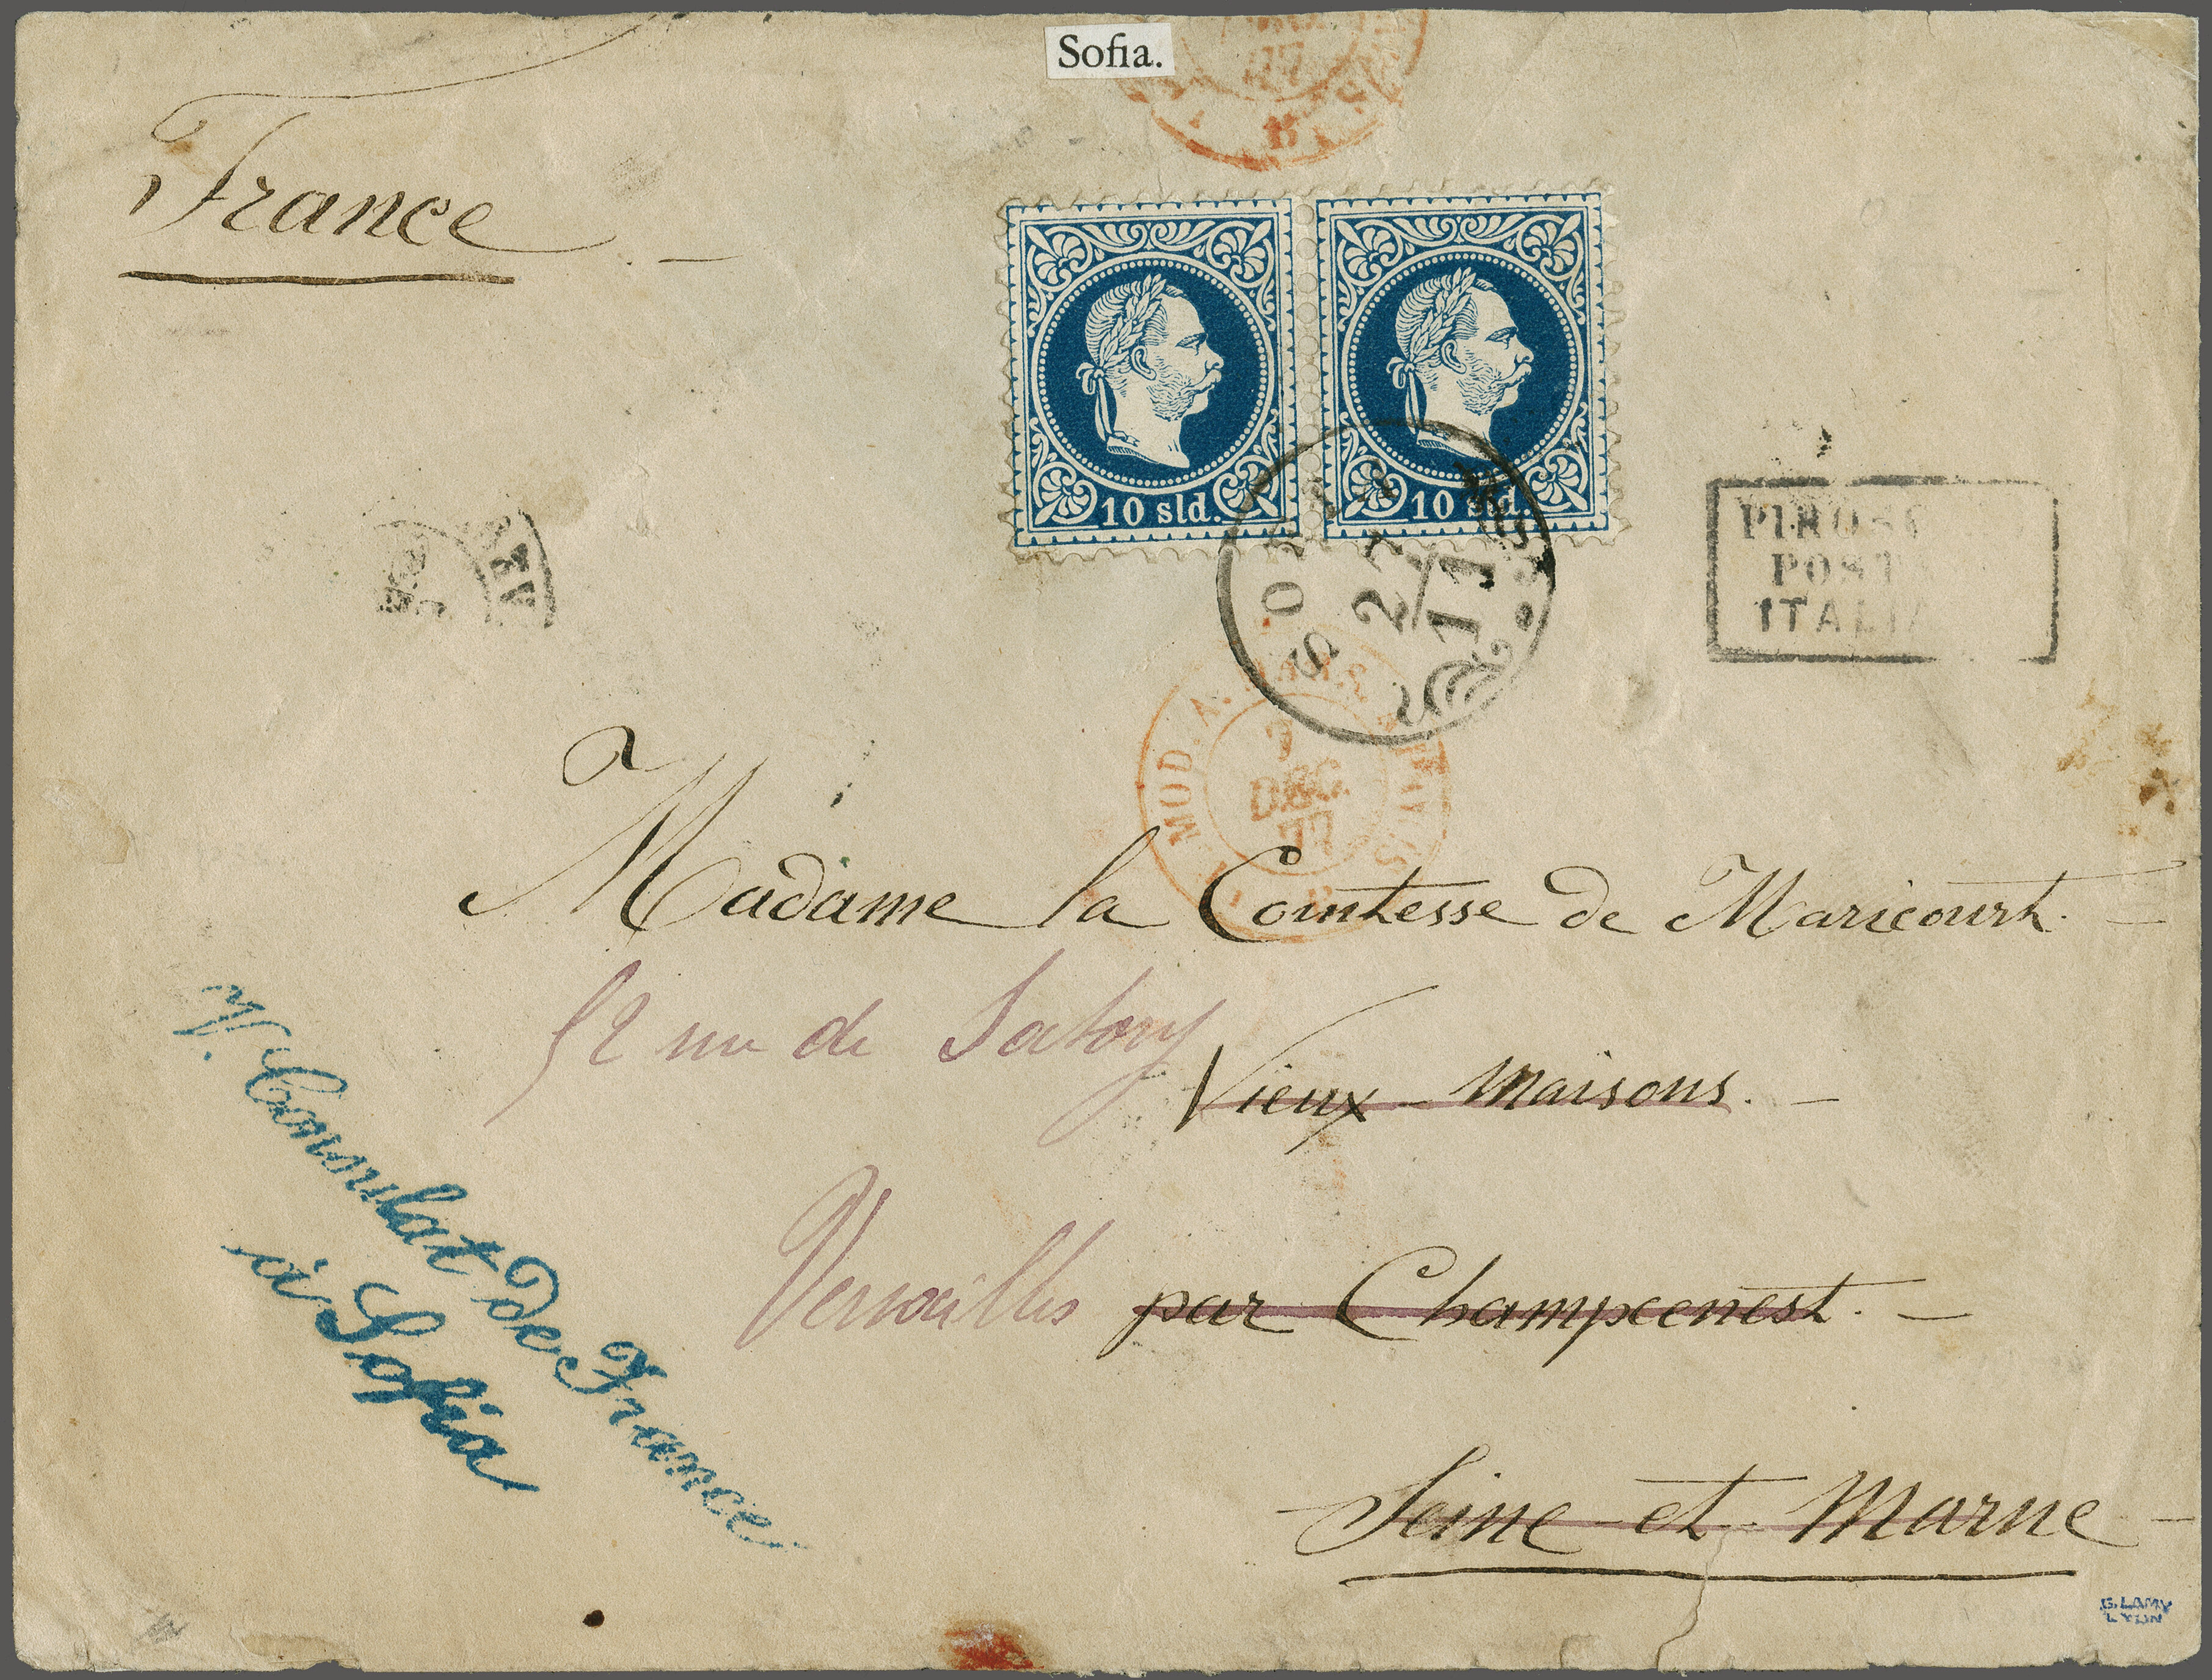 Sofia.
77
France
10 sld.
10 sld.
SOFIA
27/11
PIROSC
POST
ITALIA
MOD. A.
7
DEC.
77
Madame la Comtesse de Maricourt.
52 rue de Satory
Vieux-Maisons.
Versailles par Champcenest.
Seine-et-Marne
V. Consulat De France
à Sofia
G. LAMY
LYON